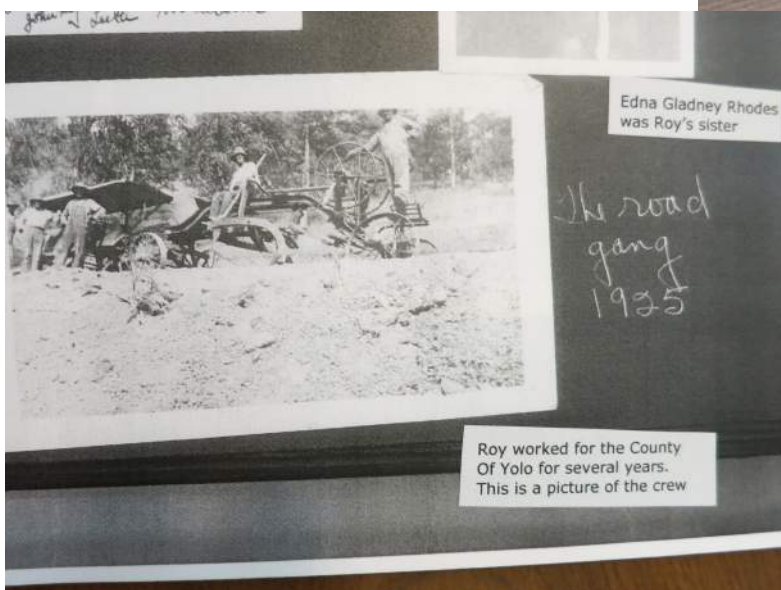 Edna Gladney Rhodes
was Roy's sister
The road
gang
1925
Roy worked for the County
Of Yolo for several years.
This is a picture of the crew